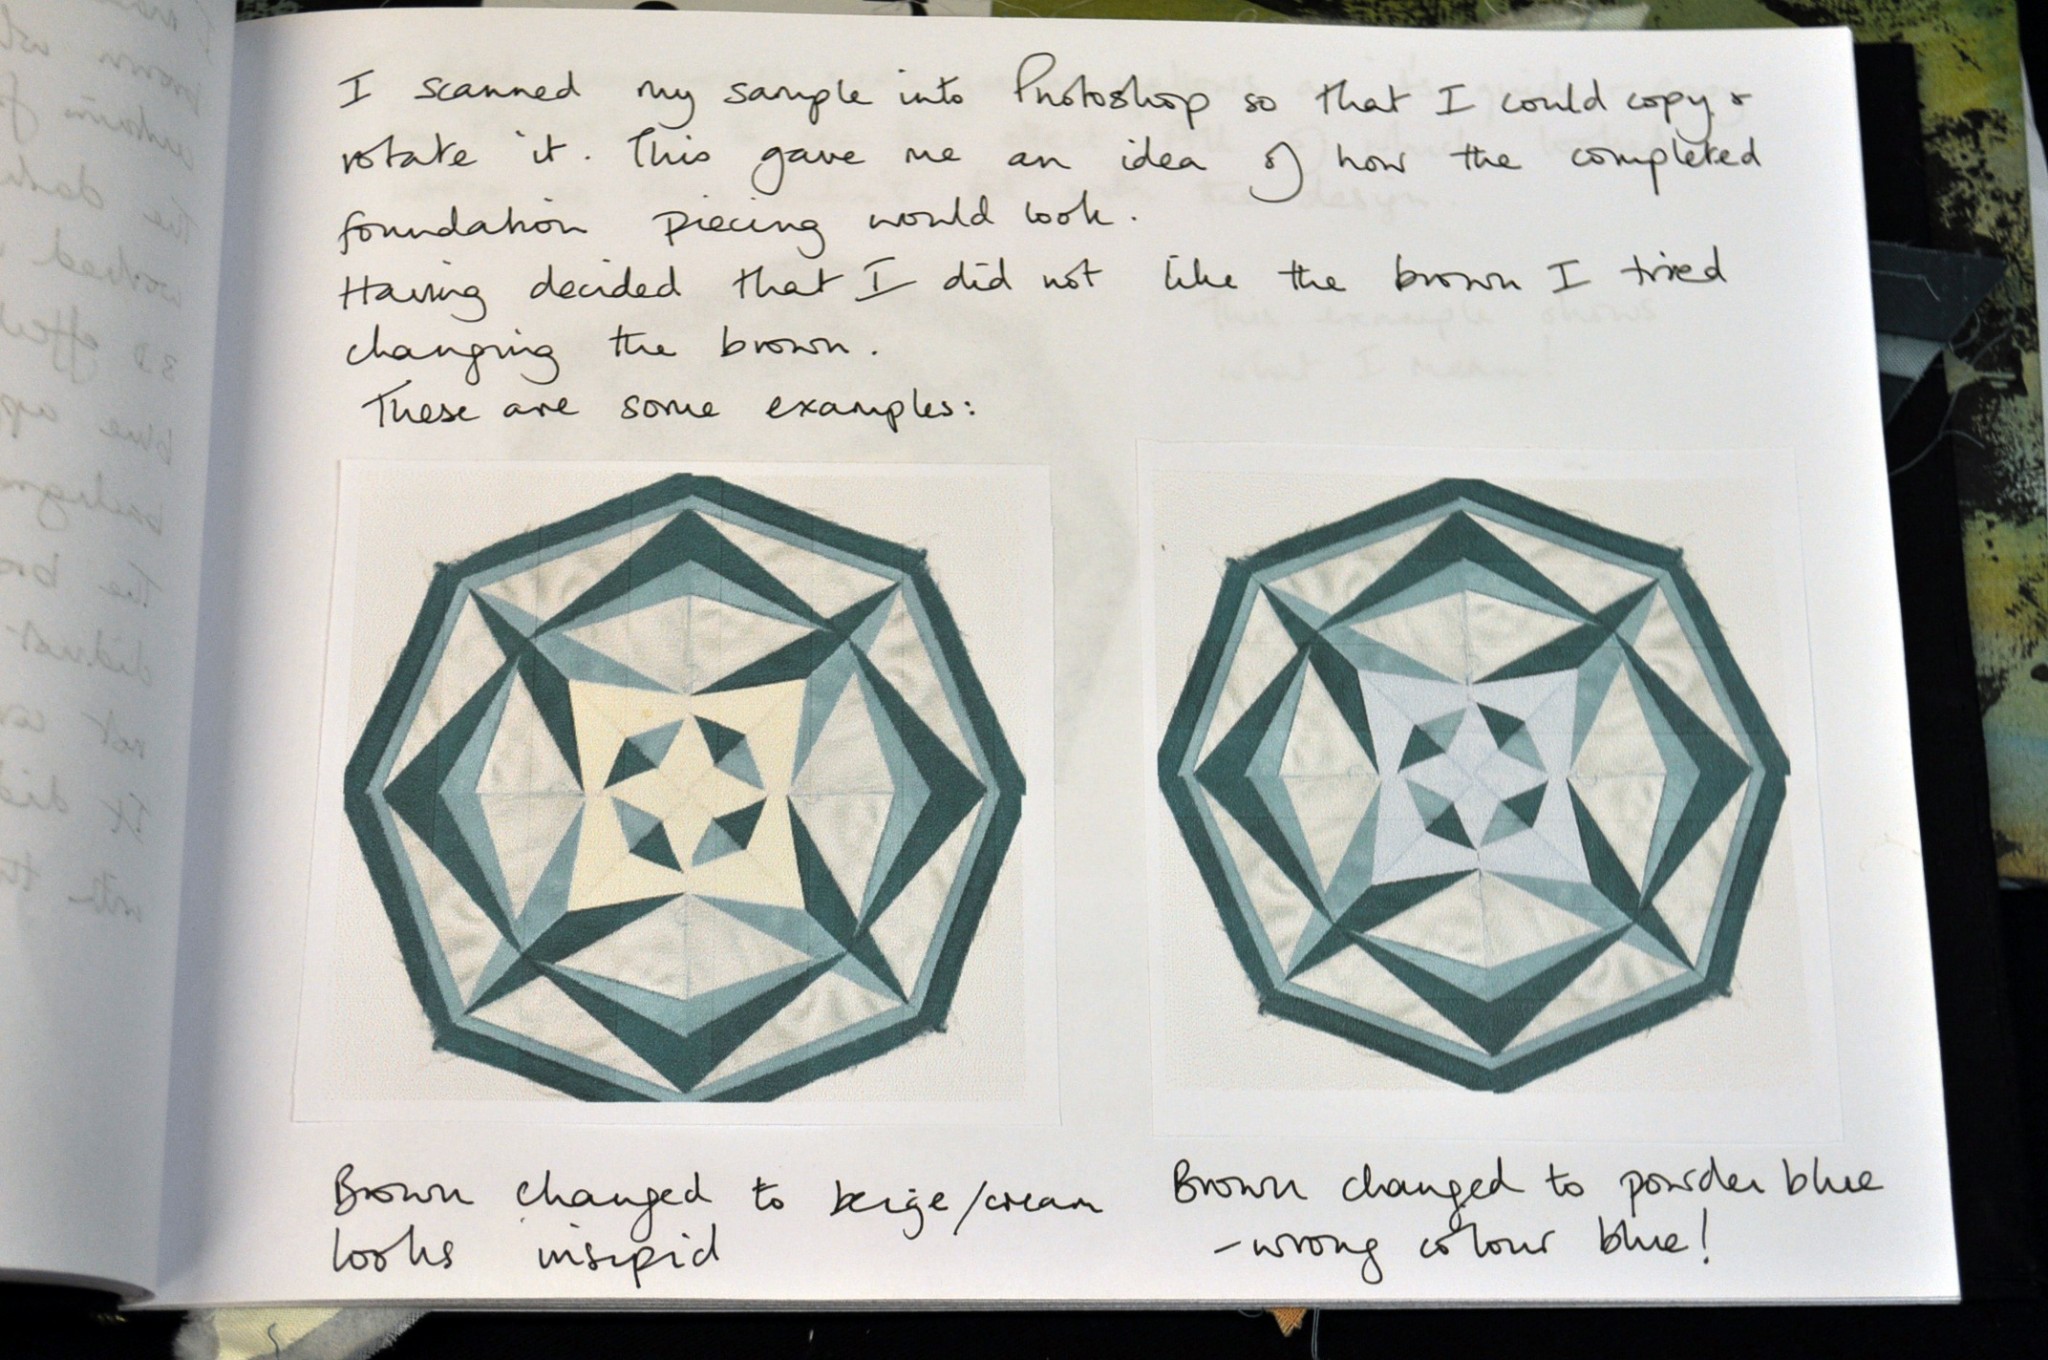 I scanned my sample into Photoshop so that I could copy &
rotate it. This gave me an idea of how the completed
foundation piecing would look.
Having decided that I did not like the brown I tried
changing the brown.
These are some examples:
Brown changed to beige/cream
looks insipid
Brown changed to powder blue
- wrong colour blue!